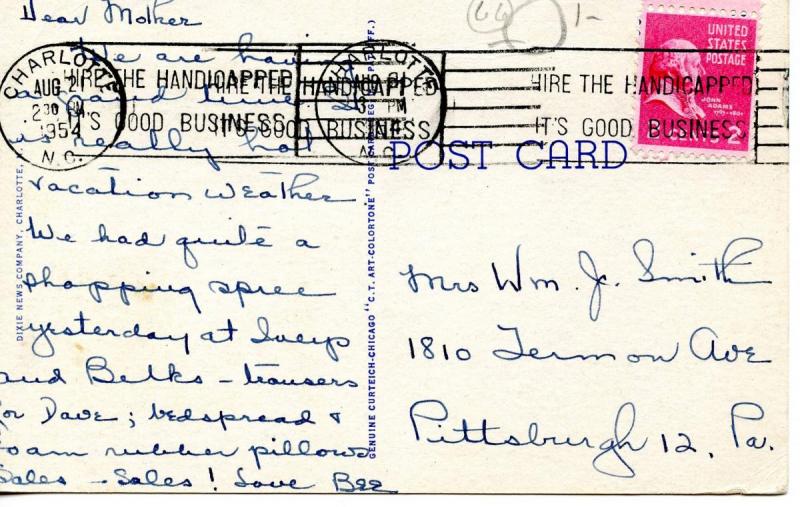 Dear Mother
We are having
a good time. It
is really hot
vacation weather
We had quite a
shopping spree
yesterday at Iveys
and Belks - trousers
for Dave; bedspread &
foam rubber pillows
Sales - Sales! Love Bee
CHARLOTTE
AUG 2
2 30 PM
1954
N.C.
HIRE THE HANDICAPPED
IT'S GOOD BUSINESS
CHARLOTTE
PM
N.C.
HIRE THE HANDICAPPED
IT'S GOOD BUSINESS
HIRE THE HANDICAPPED
IT'S GOOD BUSINESS
1-
UNITED
STATES
POSTAGE
JOHN
ADAMS
1797-1801
CENTS 2
POST CARD
Mrs Wm. J. Smith
1810 Termon Ave
Pittsburgh 12, Pa.
DIXIE NEWS COMPANY, CHARLOTTE, N.
GENUINE CURTEICH-CHICAGO "C.T. ART-COLORTONE" POST CARD (REG. U.S. PAT. OFF.)